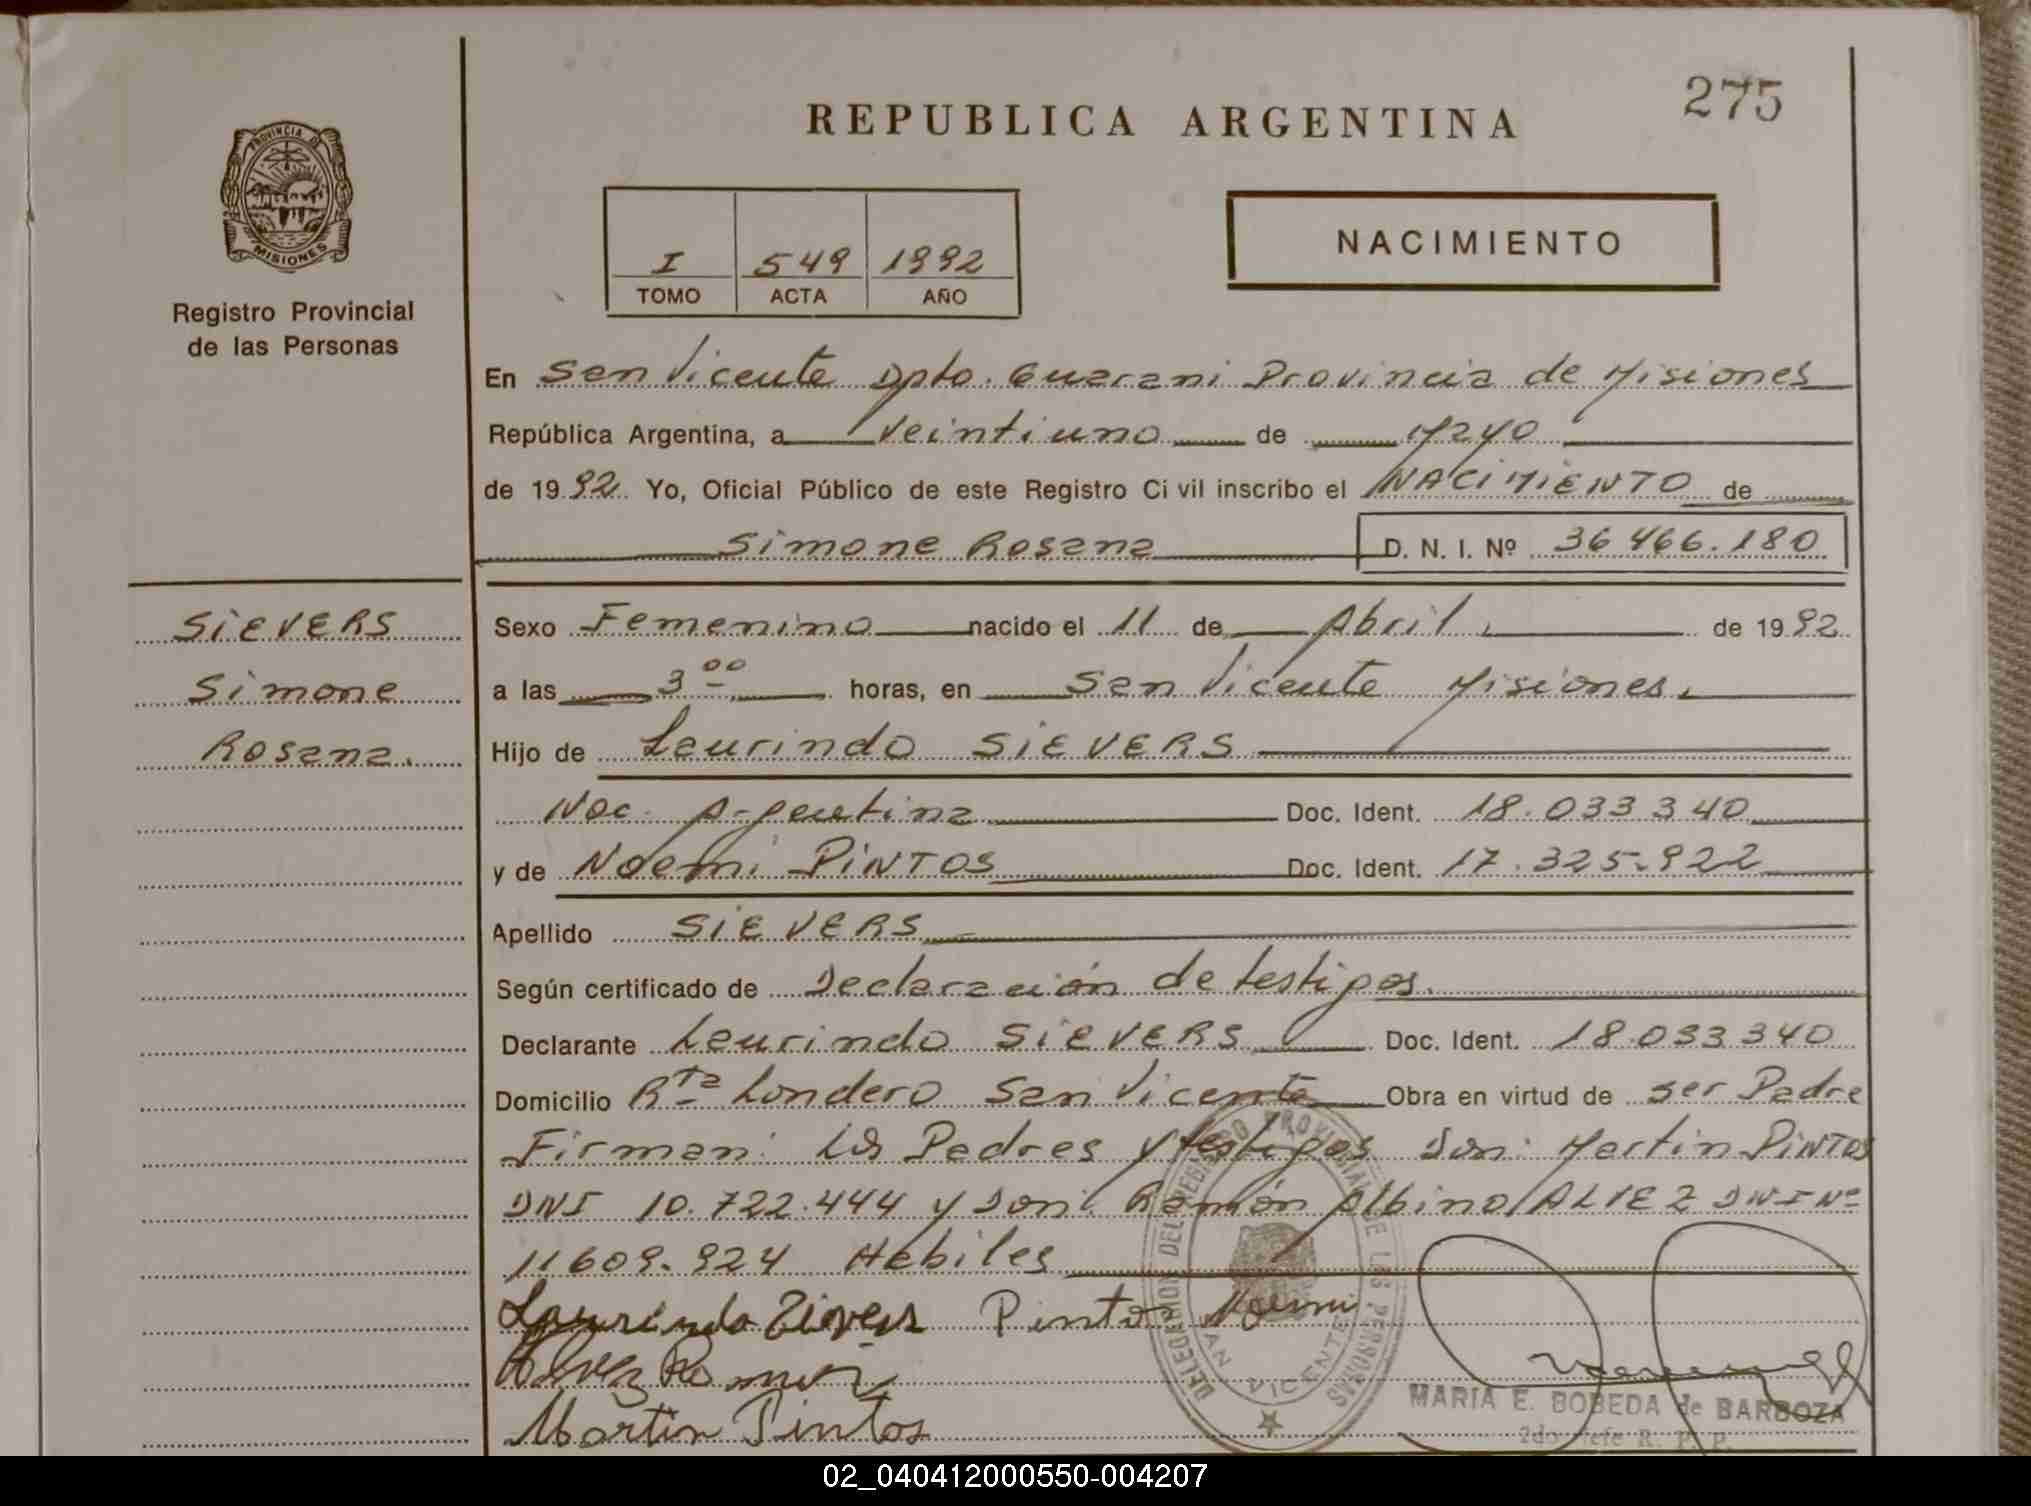 275
REPUBLICA ARGENTINA
PROVINCIA DE
MISIONES
Registro Provincial
de las Personas
I 549 1992
TOMO ACTA AÑO
NACIMIENTO
En San Vicente Dpto. Guarani Provincia de Misiones
República Argentina, a veintiuno de Mayo
de 1992. Yo, Oficial Público de este Registro Civil inscribo el NACIMIENTO de
Simone Rosana D. N. I. Nº 36466.180
SIEVERS
Simone
Rosana.
Sexo Femenino nacido el 11 de Abril. de 1992
a las 3 00 horas, en San Vicente Misiones.
Hijo de Laurindo SIEVERS
Nac. Argentina Doc. Ident. 18.033340
y de Noemi PINTOS Doc. Ident. 17.325.922
Apellido SIEVERS
Según certificado de Declaración de testigos.
Declarante Laurindo SIEVERS Doc. Ident. 18.033340
Domicilio Rta Londero San Vicente Obra en virtud de ser Padre
Firman: Los Padres y testigos Don: Martin PINTOS
DNI 10.722.444 y Don: Ramón Albino ALVEZ DNI Nº
11609.924 Habiles
Laurindo Pinto Noemi
Ramon
Martin Pintos
DELEGACION DEL REGISTRO PROVINCIAL DE LAS PERSONAS
SAN VICENTE
MARIA E. BOBEDA de BARBOZA
2do Jefe R. P. P.
02_040412000550-004207